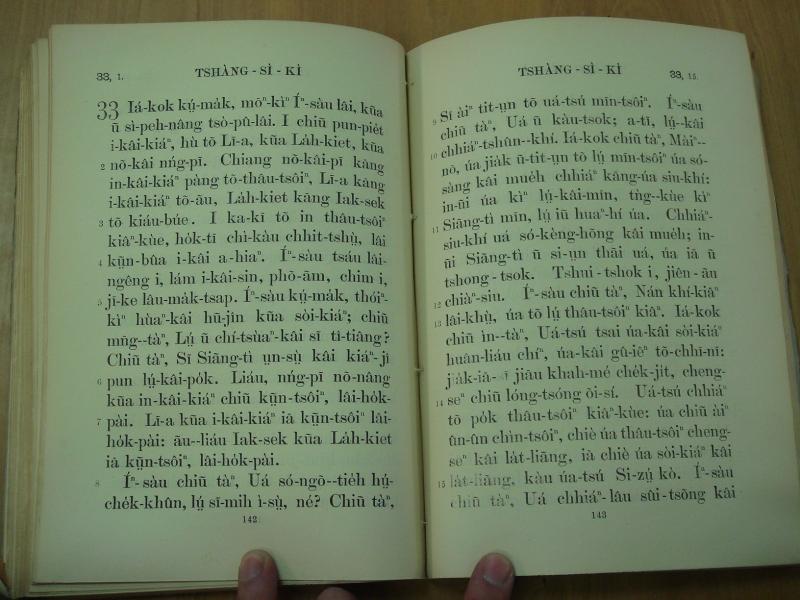 33, 1.
TSHÀNG - SÌ - KÌ
33 Iá-kok kụ́-mák, mōⁿ-kìⁿ Íⁿ-sàu lâi, kūa
ū sì-peh-nâng tsò-pû-lâi. I chiū pun-piét
i-kâi-kiáⁿ, hù tõ Lī-a, kūa Láh-kiet, kūa
2 nõ-kâi nńg-pī. Chiang nõ-kâi-pī kâng
in-kâi-kiáⁿ pàng tõ-thâu-tsôiⁿ, Lī-a kâng
i-kâi-kiáⁿ tõ-āu, Láh-kiet kâng Iak-sek
3 tõ kiáu-búe. I ka-kī tõ in thâu-tsôiⁿ
kiâⁿ-kùe, hók-tī chì-kàu chhit-tshṳ̀, lâi
4 kṳ̃n-bûa i-kâi a-hiaⁿ. Íⁿ-sàu tsáu lâi-
ngêng i, lám i-kâi-sin, phõ-ām, chim i,
5 jī-ke lâu-mák-tsap. Íⁿ-sàu kụ́-mák, thóiⁿ-
kìⁿ hùaⁿ-kâi hū-jîn kūa sòi-kiáⁿ; chiū
mn̄g--tàⁿ, Lṳ́ ū chí-tsùaⁿ-kâi sī tî-tiâng?
Chiū tàⁿ, Sĩ Siāng-tì ṳn-sṳ̀ kâi kiáⁿ-jî
6 pun lṳ́-kâi-pók. Liáu, nńg-pī nõ-nâng
kūa in-kâi-kiáⁿ chiū kṳ̃n-tsôiⁿ, lâi-hók-
7 pài. Lī-a kūa i-kâi-kiáⁿ iā kṳ̃n-tsôiⁿ lâi-
hók-pài: āu--liáu Iak-sek kūa Láh-kiet
iā kṳ̃n-tsôiⁿ, lâi-hók-pài.
8 Íⁿ-sàu chiū tàⁿ, Uá só-ngõ--tiéh hṳ́-
chék-khûn, lṳ́ sĩ-mih ì-sṳ̀, né? Chiū tàⁿ,
142
TSHÀNG - SÌ - KÌ
33, 15.
9 Sĩ àiⁿ tit-ṳn tõ uá-tsú mīn-tsôiⁿ. Íⁿ-sàu
chiū tàⁿ, Uá ū kàu-tsok; a-tĩ, lṳ́--kâi
10 chhiáⁿ-tshûn--khí. Iá-kok chiū tàⁿ, Màiⁿ--
nō, úa jiák ū-tit-ṳn tõ lṳ́ mīn-tsôiⁿ úa só-
sàng kâi muéh chhiáⁿ kāng-úa siu-khí:
in-ūi úa kìⁿ lṳ́-kâi-mīn, tǹg--kùe kìⁿ
Siāng-tì mīn, lṳ́ iū huaⁿ-hí úa. Chhiáⁿ-
11 siu-khí uá só-kèng-hõng kâi muéh; in-
ūi Siāng-tì ū si-ṳn thāi uá, úa iā ū
tshong-tsok. Tshui-tshok i, jiên-āu
12 chiàⁿ-siu. Íⁿ-sàu chiū tàⁿ, Nán khí-kiâⁿ
13 lâi-khṳ̀, úa tõ lṳ́ thâu-tsôiⁿ kiâⁿ. Iá-kok
chiū ìn--tàⁿ, Uá-tsú tsai úa-kâi sòi-kiáⁿ
huân-liáu chíⁿ, úa-kâi gû-iêⁿ tõ-chhī-nī:
jiák-iā-- jiâu khah-mé chék-jit, cheng-
seⁿ chiū lóng-tsóng õi-sí. Uá-tsú chhiáⁿ
14 tõ pók thâu-tsôiⁿ kiâⁿ-kùe: úa chiū àiⁿ
ûn-ûn chìn-tsôiⁿ, chiè úa thâu-tsôiⁿ cheng-
seⁿ kâi lát-liãng, iā chiè úa sòi-kiáⁿ kâi
15 lát-liãng, kàu úa-tsú Si-zṳ́ kò. Íⁿ-sàu
chiū tàⁿ, Uá chhiáⁿ-lâu sûi-tsõng kâi
143